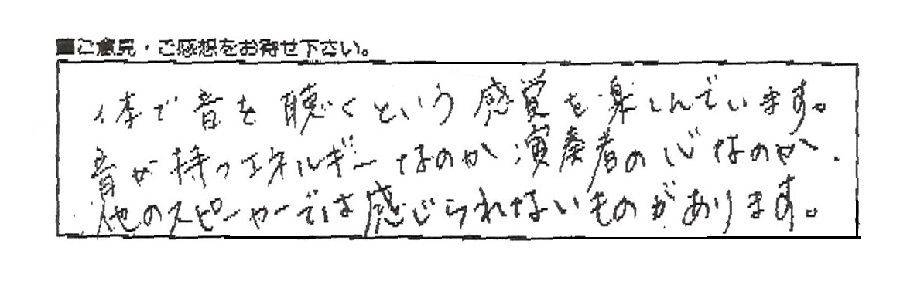 ■ご意見・ご感想をお寄せ下さい。
体で音を聴くという感覚を楽しんでいます。
音が持つエネルギーなのか演奏者の心なのか、
他のスピーカーでは感じられないものがあります。